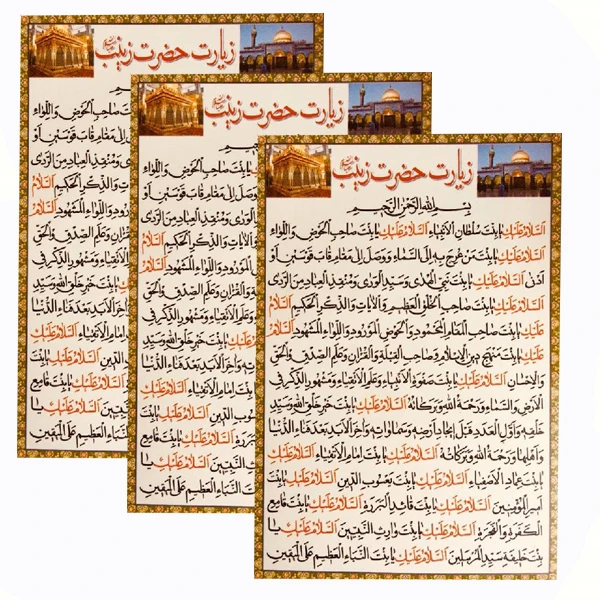 زیارت حضرت زینب
زیارت حضرت زینب
زیارت حضرت زینب
بِسْمِ اللهِ الرَّحْمٰنِ الرَّحیمِ
اَلسَّلامُ عَلَیْكِ یا بِنْتَ سُلْطانِ الْاَنْبِیاءِ اَلسَّلامُ عَلَیْكِ یا بِنْتَ صاحِبِ الْحَوْضِ وَ اللِّواءِ
اَلسَّلامُ عَلَیْكِ یا بِنْتَ مَنْ عُرِجَ بِهِ اِلَی السَّماءِ وَ وُصِلَ اِلی مَقامِ قابَ قَوْسَیْنِ اَوْ
اَدْنی اَلسَّلامُ عَلَیْكِ یا بِنْتَ نَبِیِّ الْهُدی وَ سَیِّدِ الْوَری وَ مُنْقِذِ الْعِبادِ مِنَ الرَّدی
اَلسَّلامُ عَلَیْكِ یا بِنْتَ صاحِبِ الْخُلُقِ الْعَظیمِ وَ الْایاتِ وَ الذِّكْرِ الْحَكیمِ اَلسَّلامُ
عَلَیْكِ یا بِنْتَ صاحِبِ الْمَقامِ الْمَحْمُودِ وَ الْحَوْضِ الْمَوْرُودِ وَ اللِّواءِ الْمَشْهُودِ اَلسَّلامُ
عَلَیْكِ یا بِنْتَ مَنْهَجِ دینِ الْاِسْلامِ وَ صاحِبِ الْقِبْلَةِ وَ الْقُرْانِ وَ عَلَمِ الصِّدْقِ وَ الْحَقِّ
وَ الْاِحْسانِ اَلسَّلامُ عَلَیْكِ یا بِنْتَ صَفْوَةِ الْاَنْبِیاءِ وَ عَلَمِ الْاَتْقِیاءِ وَ مَشْهُورِ الذِّكْرِ فِی
الْاَرْضِ وَ السَّماءِ وَ رَحْمَةُ اللهِ وَ بَرَكاتُهُ اَلسَّلامُ عَلَیْكِ یا بِنْتَ خَیْرِ خَلْقِ اللهِ وَ سَیِّدِ
خَلْقِهِ وَ اَوَّلِ الْعَدَدِ قَبْلَ ایجادِ اَرْضِهِ وَ سَماواتِهِ وَ اخِرِ الْاَبَدِ بَعْدَ فَناءِ الدُّنْیا
وَ اَهْلِها وَ رَحْمَةُ اللهِ وَ بَرَكاتُهُ اَلسَّلامُ عَلَیْكِ یا بِنْتَ اِمامِ الْاَتْقِیاءِ اَلسَّلامُ عَلَیْكِ
یا بِنْتَ عِمادِ الْاَصْفِیاءِ اَلسَّلامُ عَلَیْكِ یا بِنْتَ یَعْسُوبِ الدّینِ اَلسَّلامُ عَلَیْكِ یا بِنْتَ
اَمیرِ الْمُؤْمِنینَ اَلسَّلامُ عَلَیْكِ یا بِنْتَ قائِدِ الْبَرَرَةِ اَلسَّلامُ عَلَیْكِ یا بِنْتَ قامِعِ
الْكَفَرَةِ وَ الْفَجَرَةِ اَلسَّلامُ عَلَیْكِ یا بِنْتَ وارِثِ النَّبِیّینَ اَلسَّلامُ عَلَیْكِ یا
بِنْتَ خَلیفَةِ سَیِّدِ الْمُرْسَلینَ اَلسَّلامُ عَلَیْكِ یا بِنْتَ النَّبَاءِ الْعَظیمِ عَلَی الْیَقینِ